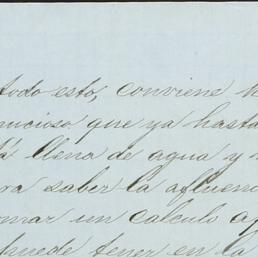 todo esto, conviene
nucioso que ya hasta
tá llena de agua y
ra saber la afluen
omar un calculo a
puede tener en la